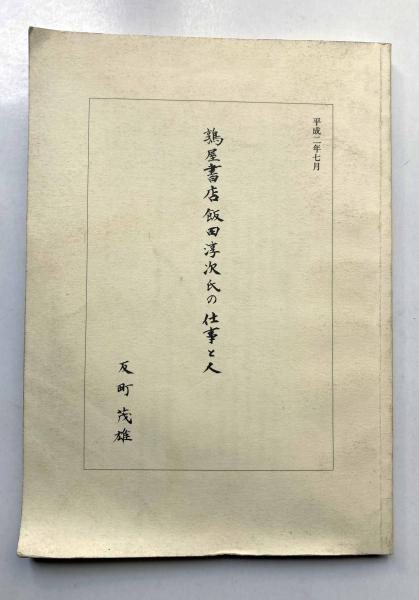 平成二年七月
鶉屋書店飯田淳次氏の仕事と人
反町茂雄